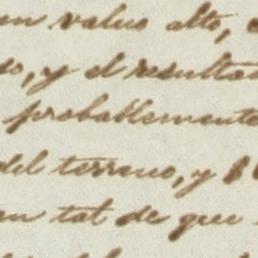 un valor alto,
y el resulta
probablemente
del terreno, y
en tal de que